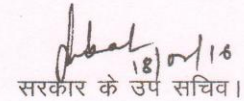 18/07/16
सरकार के उप सचिव।